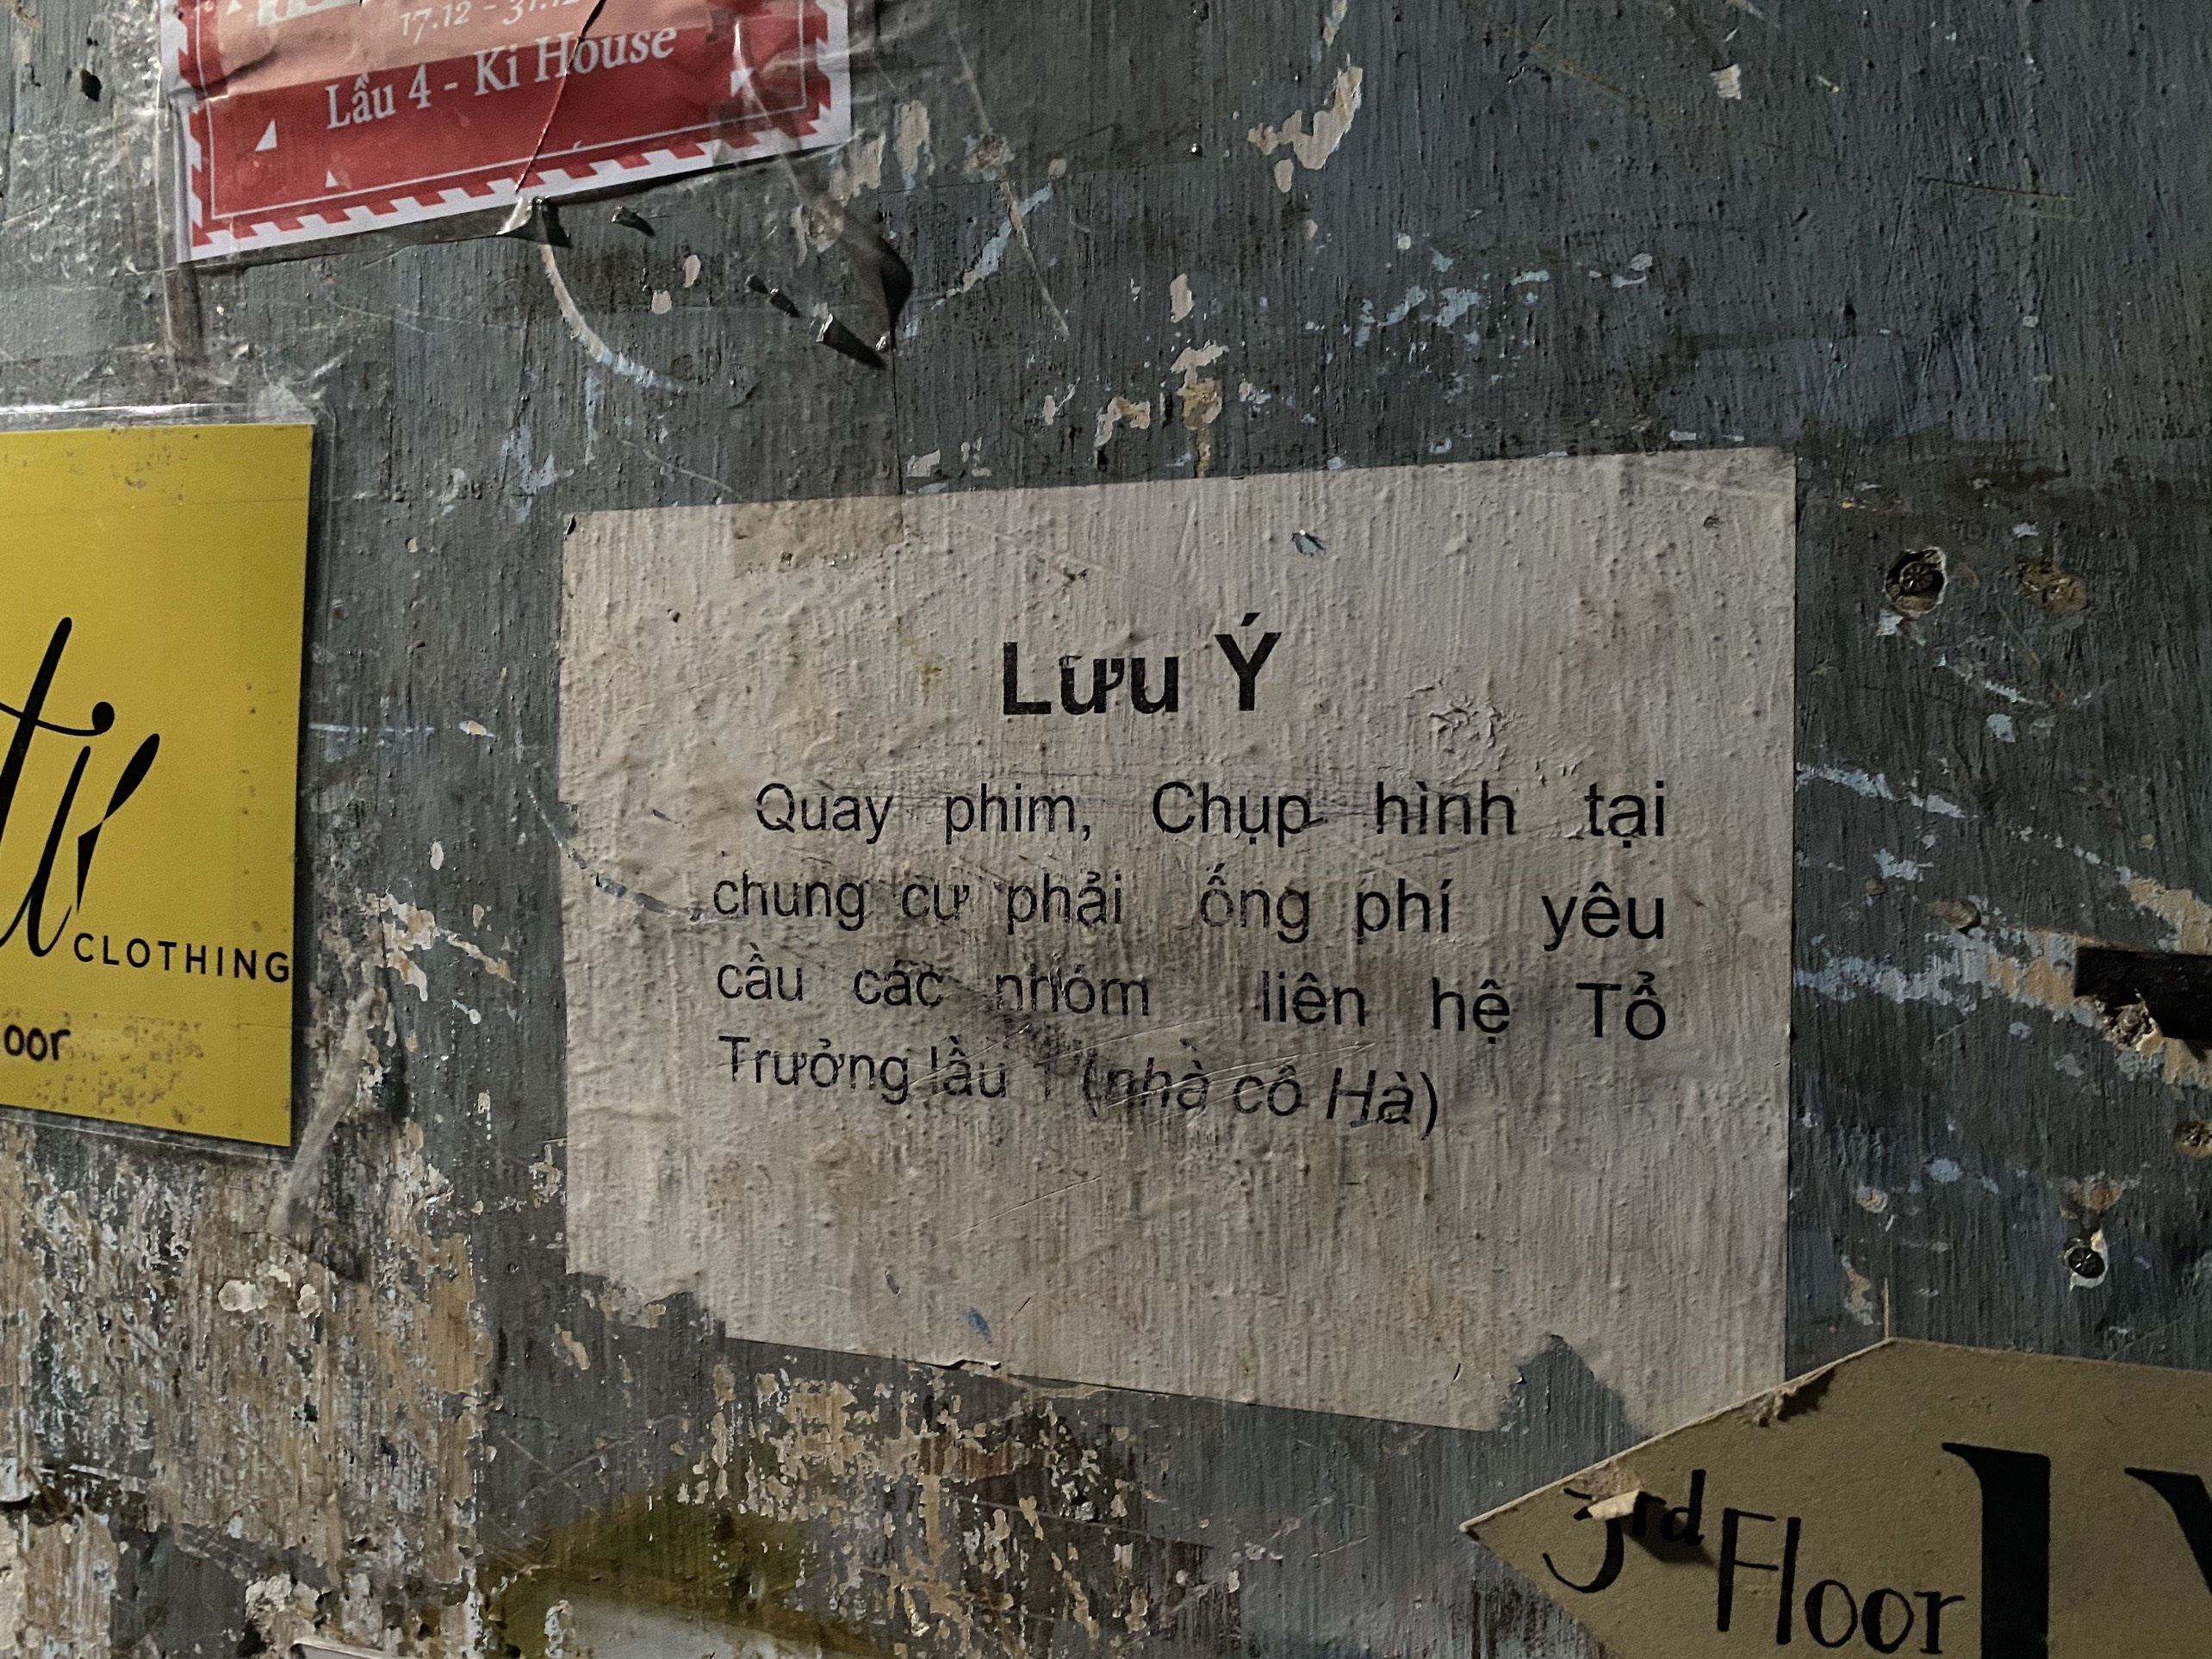 17.12 - 31.12
Lầu 4 - Ki House
CLOTHING
oor
Lưu Ý
Quay phim, Chụp hình tại
chung cư phải ống phí yêu
cầu các nhóm liên hệ Tổ
Trưởng lầu 1 (nhà cô Hà)
3rd Floor